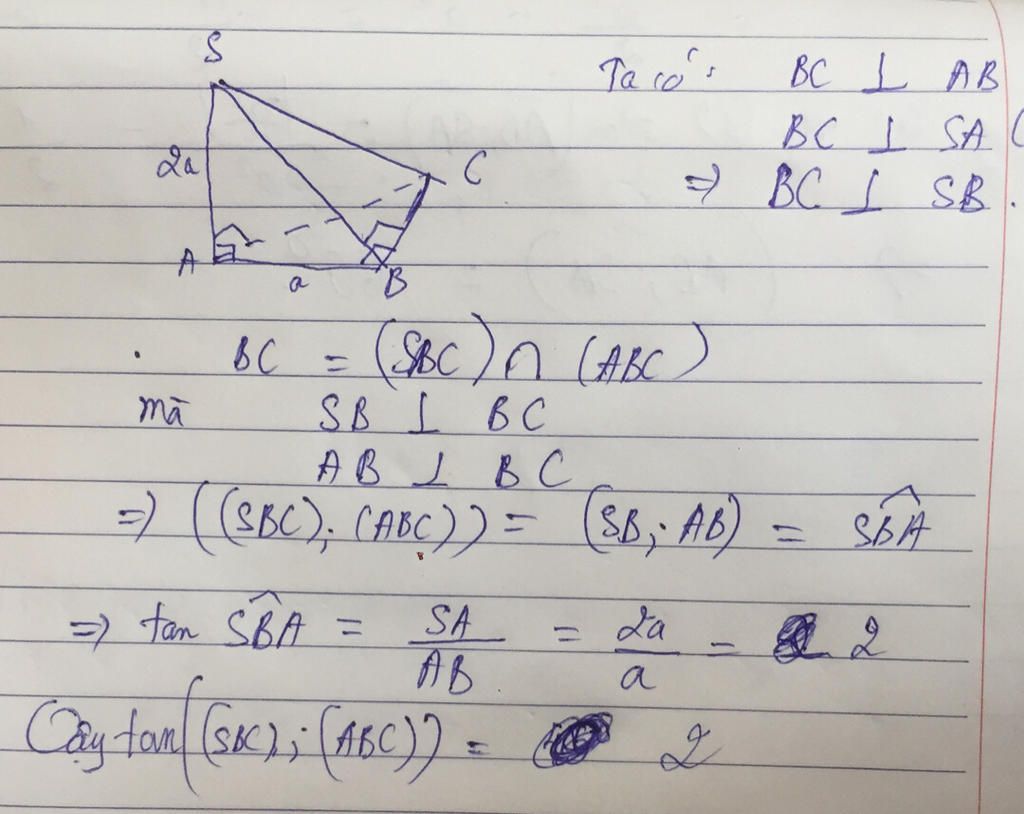 S
2a
C
A
a
B
Ta có: BC ⊥ AB
BC ⊥ SA (
=> BC ⊥ SB.
. BC = (SBC) ∩ (ABC)
mà SB ⊥ BC
AB ⊥ BC
=> ((SBC); (ABC)) = (SB; AB) = \widehat{SBA}
=> tan \widehat{SBA} = SA/AB = 2a/a = 2
Vậy tan((SBC); (ABC)) = 2